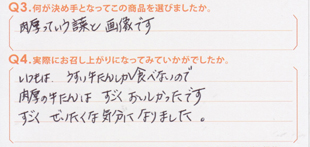 Q3.何が決め手となってこの商品を選びましたか。
肉厚っていう言葉と画像です
Q4.実際にお召し上がりになってみていかがでしたか。
いつもは うすい牛たんしか食べないので
肉厚の牛たんは すごくおいしかったです
すごく ぜいたくな気分に なりました。